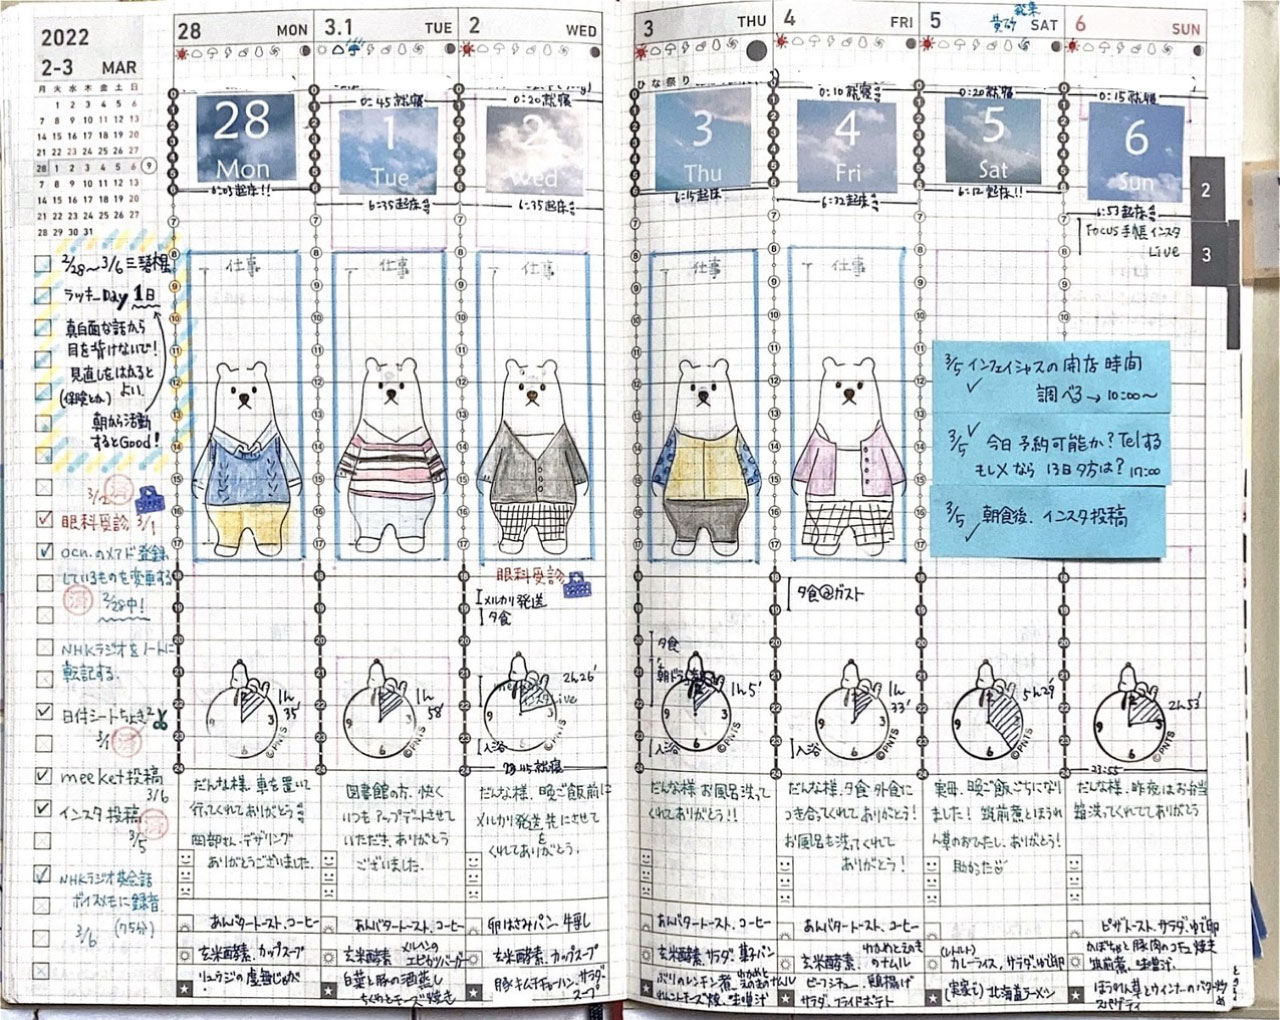 2022
2-3 MAR
月 火 水 木 金 土 日
1 2 3 4 5 6
7 8 9 10 11 12 13
14 15 16 17 18 19 20
21 22 23 24 25 26 27
28 1 2 3 4 5 6 9
7 8 9 10 11 12 13
14 15 16 17 18 19 20
21 22 23 24 25 26 27
28 29 30 31
2/28〜3/6 三碧木星
ラッキーDay 1日
真面目な話から
目を背けないで!
見直しをはかると
(保険とか) よい.
朝から活動
するとGood!
3/2 済
眼科受診 3/1
ocn.のメアド登録
しているものを変更する
済 2/28中!
NHKラジオをノートに
転記する.
日付シートちょき2
3/1 済
meeket投稿
3/6
インスタ投稿
3/5
NHKラジオ英会話
ボイスメモに録音
3/6 (75分)
28 MON
28
Mon
6:03起床!!
仕事
1h
35'
だんな様. 車を置いて
行ってくれてありがとう
岡部さん. デザリング
ありがとうございました.
あんバタートースト. コーヒー
玄米酵素. カップスープ
3.1 TUE
0:45就寝
1
Tue
6:35起床
仕事
1h
58'
図書館の方. 快く
いつもアップデートさせて
いただき. ありがとう
ございました.
あんバタートースト. コーヒー
玄米酵素
白菜と豚の酒蒸し
ちくわとチーズ焼き
2 WED
0:20就寝
2
Wed
6:35起床
仕事
眼科受診
メルカリ発送
夕食
2h26'
インスタLive
入浴
23:45就寝
だんな様. 晩ご飯前に
メルカリ発送 先にさせて
くれてありがとう.
卵はさみパン. 牛乳
玄米酵素. カップスープ
豚キムチチャーハン. サラダ
スープ
3 THU
ひな祭り
3
Thu
6:15起床
仕事
夕食
朝ドラ
1h5'
入浴
©PNTS
だんな様 お風呂洗って
くれてありがとう!!
あんバタートースト. コーヒー
玄米酵素. サラダ. 菓子パン
4 FRI
0:10就寝
4
Fri
6:32起床
仕事
夕食@ガスト
1h
33'
入浴
©PNTS
だんな様. 夕食 外食に
つき合ってくれてありがとう!
お風呂も洗ってくれて
ありがとう!
あんバタートースト. コーヒー
玄米酵素. わかめとえのき
のナムル
ビーフシチュー. 鶏揚げ
サラダ. フライドポテト
5 SAT
0:20就寝
5
Sat
6:12起床!!
3/5 インフェイシャスの開店時間
調べる→10:00〜
3/5 今日予約可能か? Telする
もし×なら 13日夕方は? 17:00
3/5 朝食後. インスタ投稿
5h29'
©PNTS
実母. 晩ご飯ごちになり
ました! 筑前煮とほうれ
ん草のおひたし. ありがとう!
助かった
(レトルト)
カレーライス. サラダ. ゆで卵
(実家で) 北海道ラーメン
6 SUN
0:15就寝
6
Sun
6:53起床
Focus手帳 インスタ
Live
2h53'
©PNTS
23:55
だんな様. 昨夜はお弁当
箱洗ってくれてありがとう
ピザトースト. サラダ. ゆで卵
筑前煮. 味噌汁.
ほうれん草とウインナーのバター炒め
スパゲティ
2
3